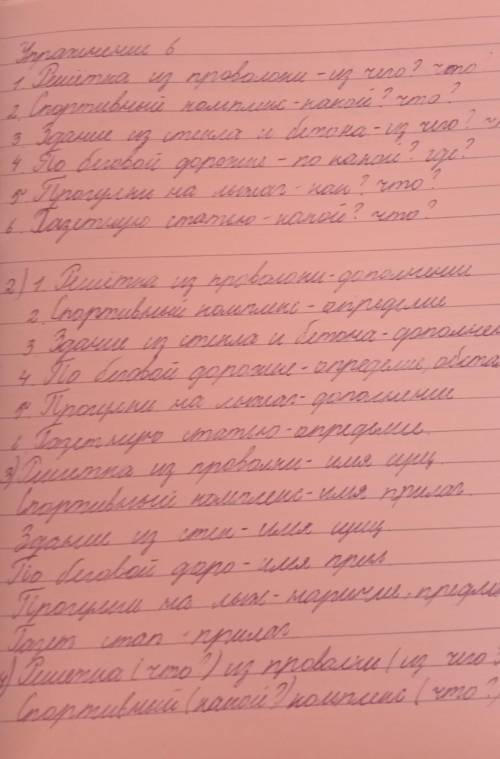 Упражнение 6
1. Решётка из проволоки - из чего? что?
2. Спортивный комплекс - какой? что?
3 Здание из стекла и бетона - из чего?
4. По беговой дорожке - по какой? где?
5 Прогулки на лыжах - как? что?
6. Газетную статью - какой? что?
2) 1. Решётка из проволоки - дополнение
2. Спортивный комплекс - определие
3 Здание из стекла и бетона - дополнен
4. По беговой дорожке - определие, обста
5 Прогулки на лыжах - дополнение
6 Газетную статью - определие.
3) Решётка из проволки - имя сущ
Спортивный комплекс - имя прилаг.
Здание из стек - имя сущ
По беговой доро - имя прил
Прогулки на лыж - наричие, предло
Газет стат - прилаг
4) Решетка (что?) из проволки (из чего?
Спортивный (какой?) комплекс (что?)